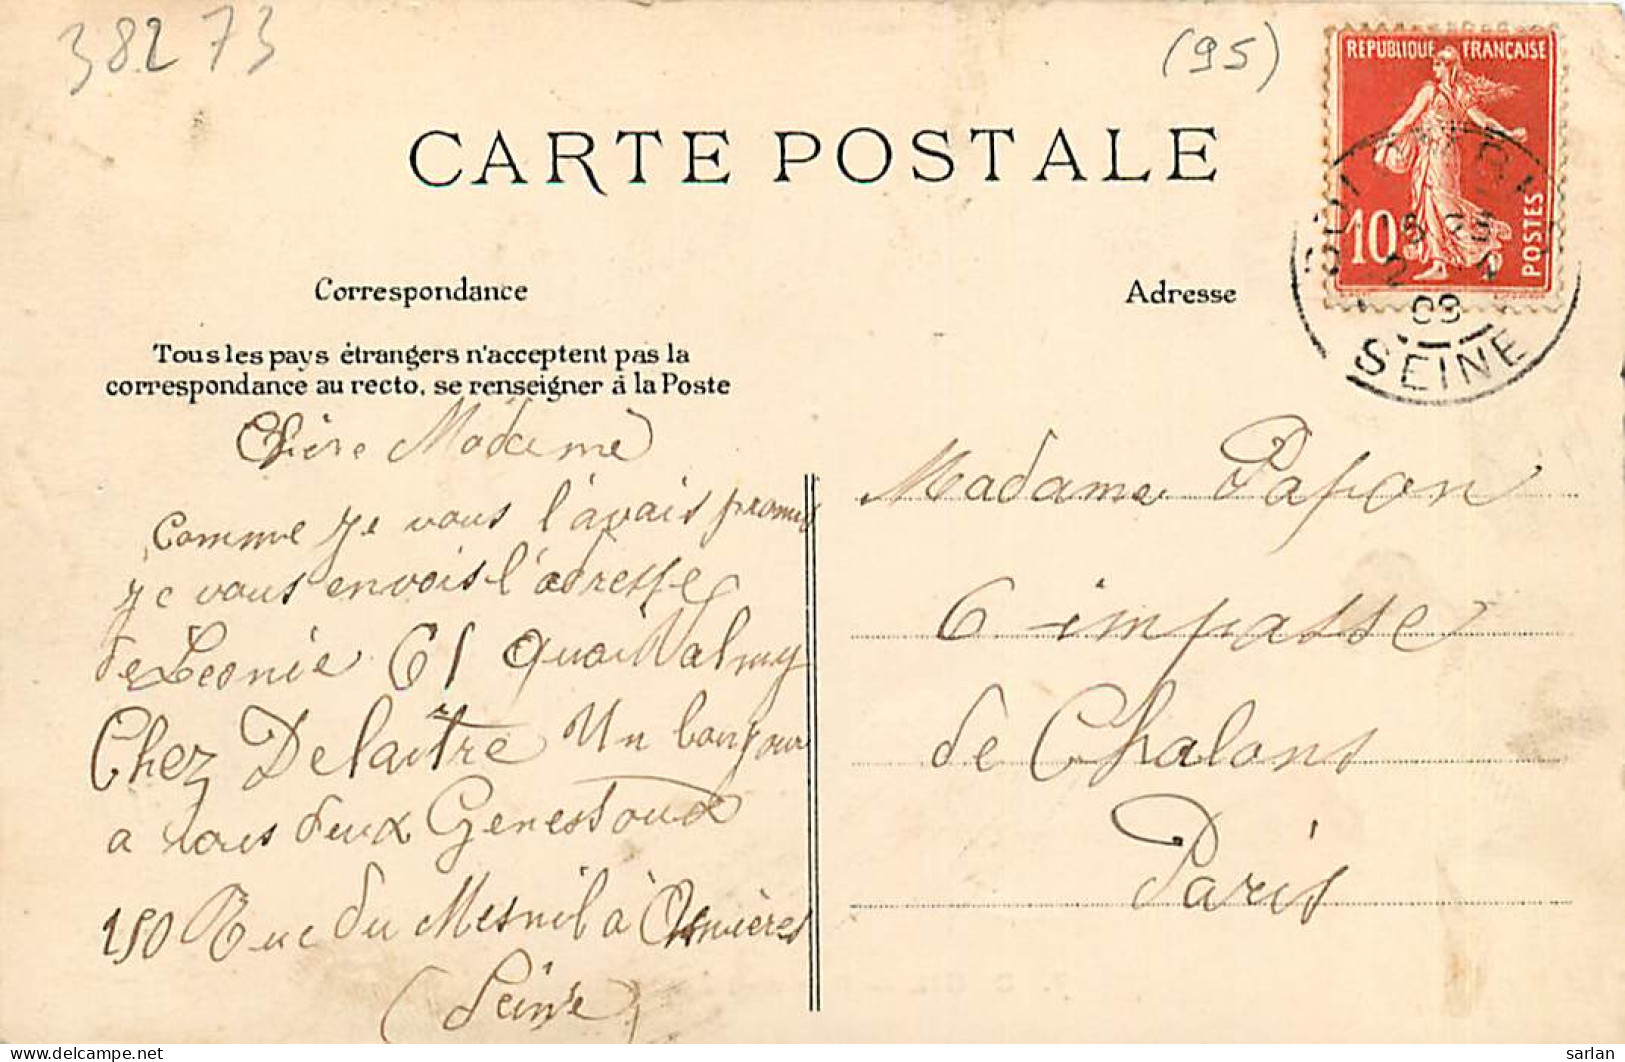 38273
(95)
RÉPUBLIQUE FRANÇAISE
10
POSTES
09
SEINE
CARTE POSTALE
Correspondance
Adresse
Tous les pays étrangers n'acceptent pas la
correspondance au recto, se renseigner à la Poste
Chère Madame
Comme je vous l'avais promis
je vous envois l'adresse
de Léonie 61 quai Valmy
Chez Delaitre Un bonjour
a tous deux Genestoux
150 Rue du Mesnil à Asnières
(Seine)
Madame Papon
6 impasse
de Chalons
Paris
delcampe.net
sarlan